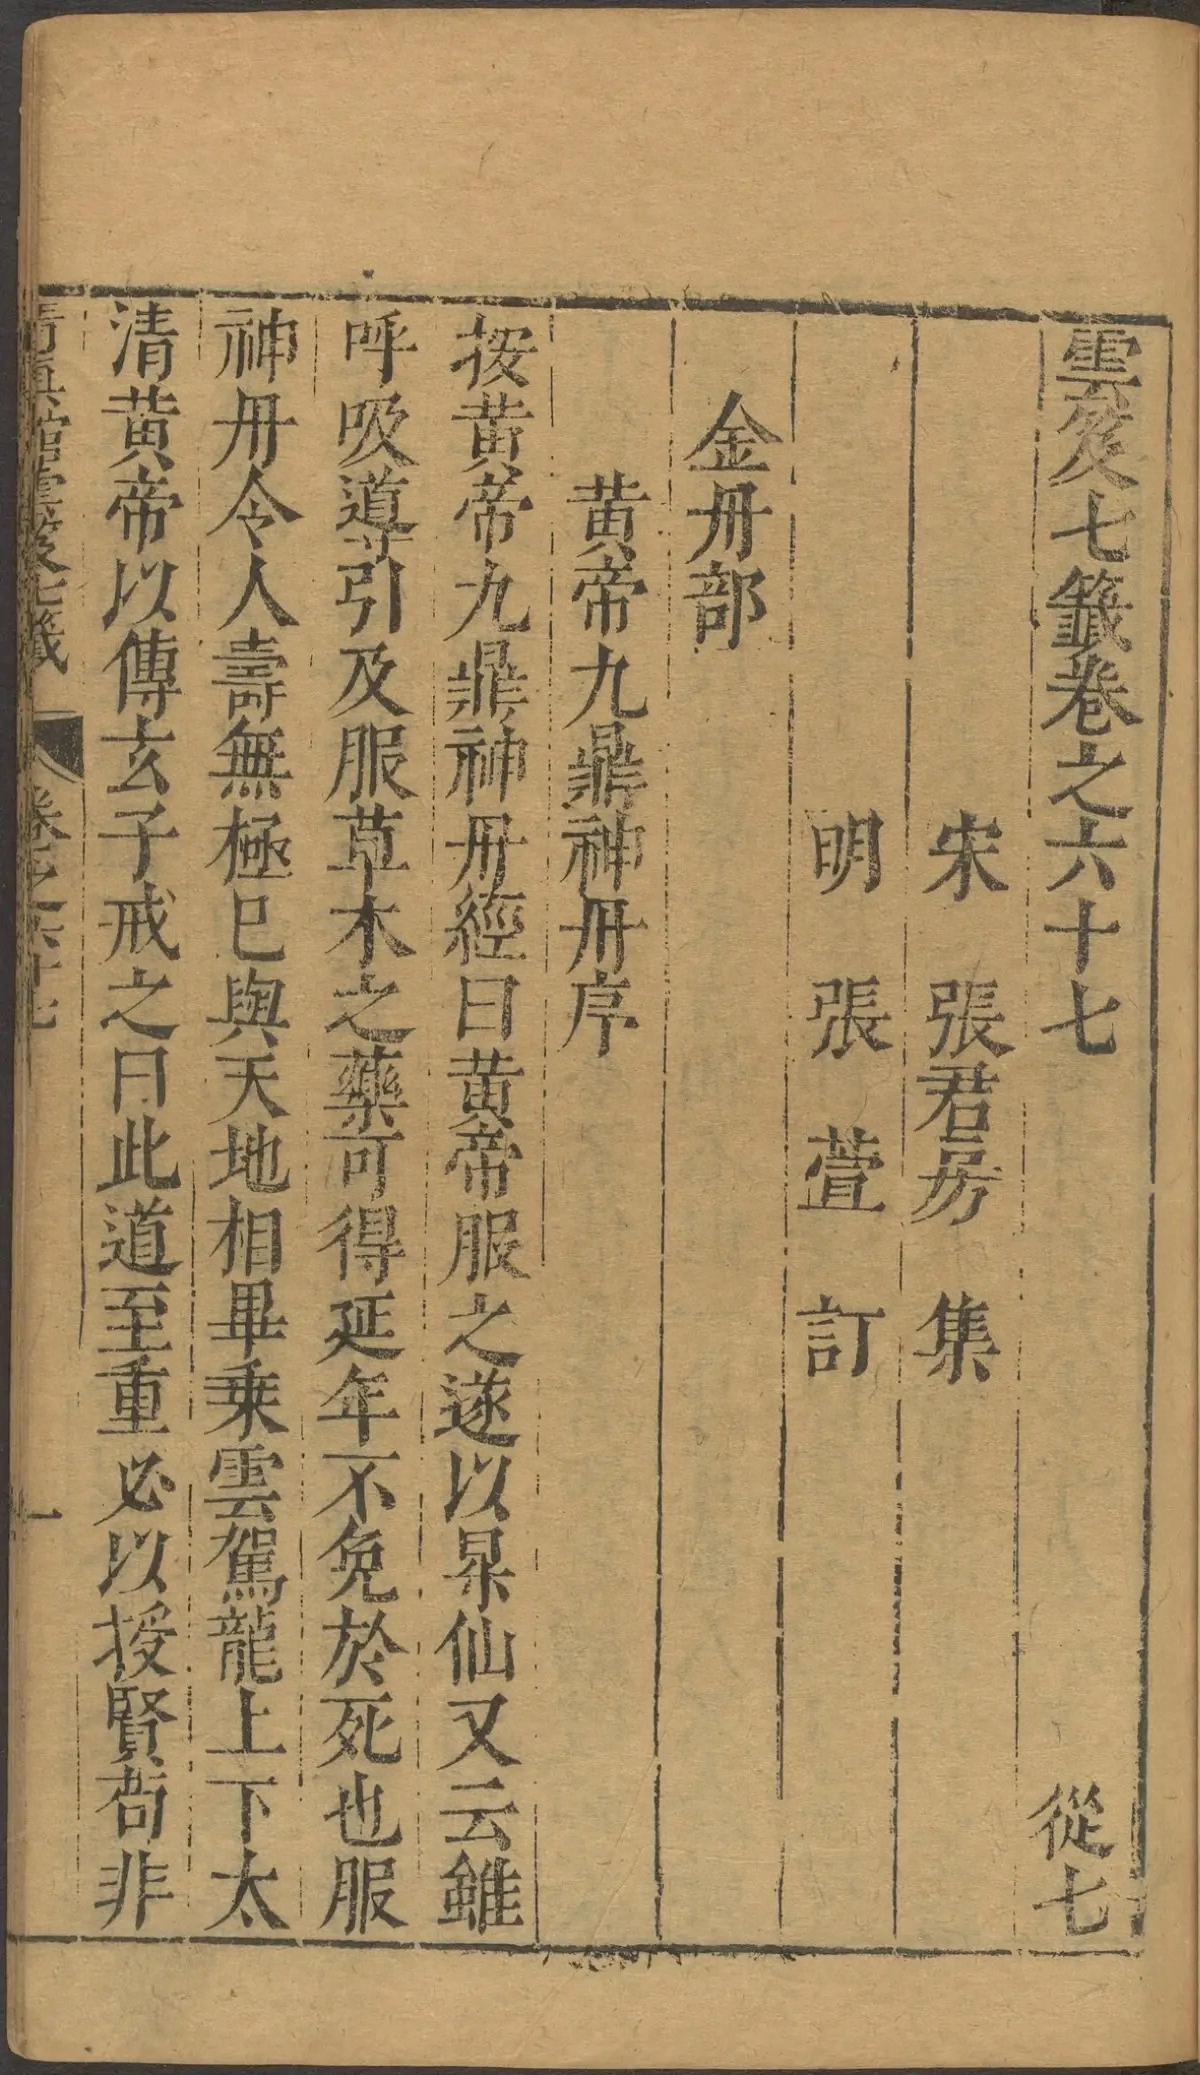 雲笈七籤卷之六十七 從七
宋 張君房 集
明 張萱 訂
金丹部
黄帝九鼎神丹序
按黄帝九鼎神丹經曰黄帝服之遂以昇仙又云雖
呼吸導引及服草木之藥可得延年不免於死也服
神丹令人壽無極已與天地相畢乗雲駕龍上下太
清黄帝以傳玄子戒之曰此道至重必以授賢苟非
清真館雲笈七籤 卷之六十七 一